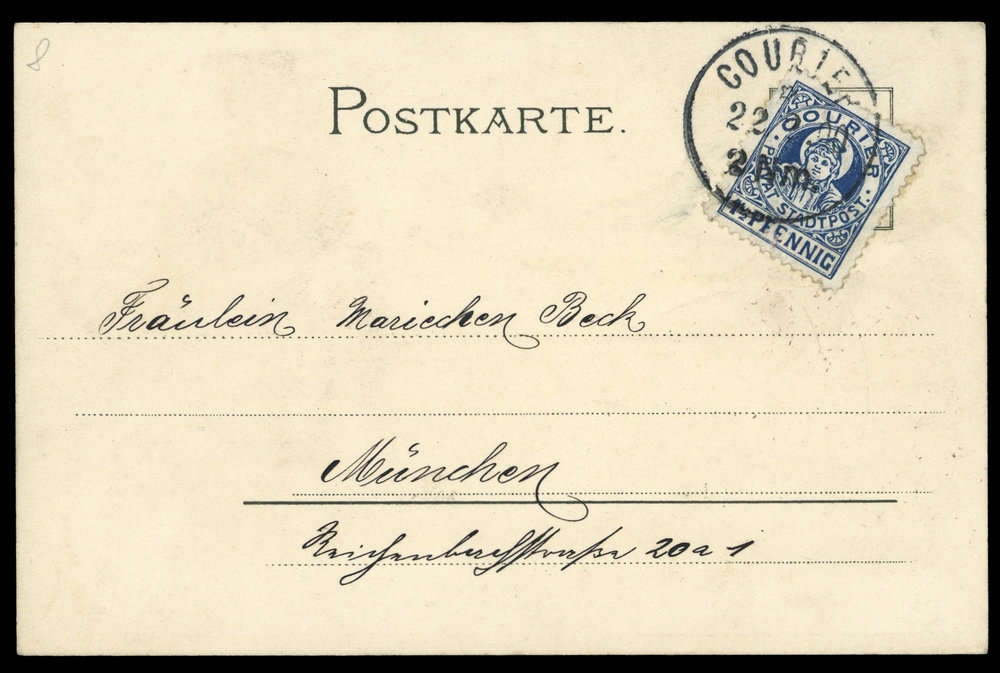 8
POSTKARTE.
COURIER
22
2 Nm.
COURIER
PRIVAT STADTPOST.
1½ PFENNIG
Fräulein Mariechen Beck
München
Reichenbachstraße 20a 1